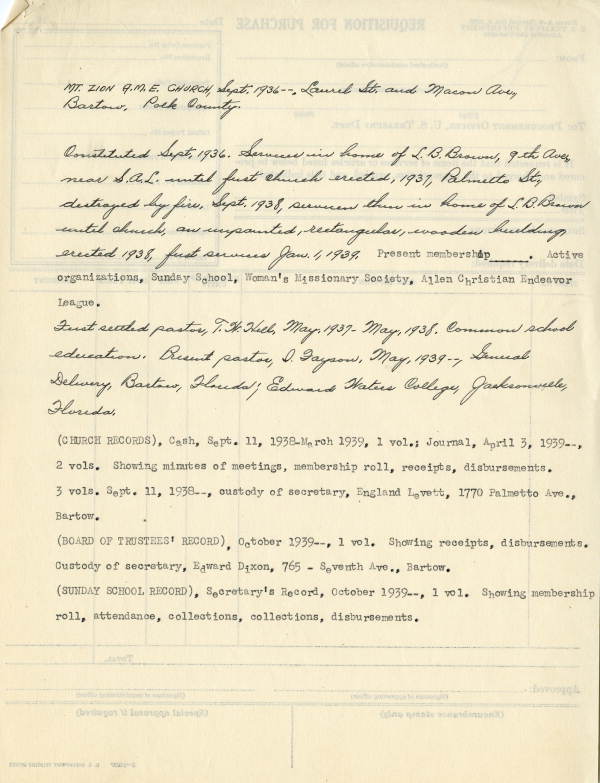 MT. ZION A.M.E. CHURCH, Sept. 1936--, Laurel St. and Macon Ave.,
Bartow, Polk County.
Constituted Sept. 1936. Services in home of L.B. Brown, 9th Ave.,
near S.A.L. until first church erected, 1937, Palmetto St.,
destroyed by fire, Sept. 1938, services then in home of L.B. Brown
until church, an unpainted, rectangular, wooden building,
erected 1938, first services Jan. 1, 1939. Present membership ______. Active
organizations, Sunday School, Woman's Missionary Society, Allen Christian Endeavor
League.
First settled pastor, T.H. Hill, May, 1937- May, 1938. Common school
education. Present pastor, D. Gayson, May, 1939--, General
Delivery, Bartow, Florida; Edward Waters College, Jacksonville,
Florida.
(CHURCH RECORDS), Cash, Sept. 11, 1938-March 1939, 1 vol.; Journal, April 3, 1939--,
2 vols. Showing minutes of meetings, membership roll, receipts, disbursements.
3 vols. Sept. 11, 1938--, custody of secretary, England Lovett, 1770 Palmetto Ave.,
Bartow.
(BOARD OF TRUSTEES' RECORD), October 1939--, 1 vol. Showing receipts, disbursements.
Custody of secretary, Edward Dixon, 765 - Seventh Ave., Bartow.
(SUNDAY SCHOOL RECORD), Secretary's Record, October 1939--, 1 vol. Showing membership
roll, attendance, collections, collections, disbursements.